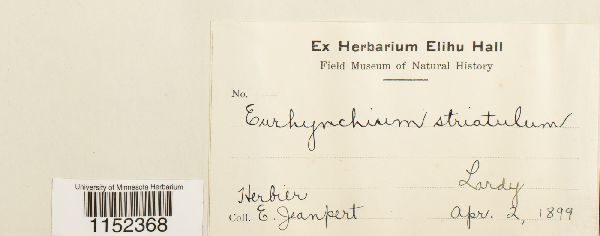 Ex Herbarium Elihu Hall
Field Museum of Natural History
No.
Eurhynchium striatulum
Lardy
Herbier
Coll. E. Jeanpert Apr. 2, 1899
University of Minnesota Herbarium
1152368